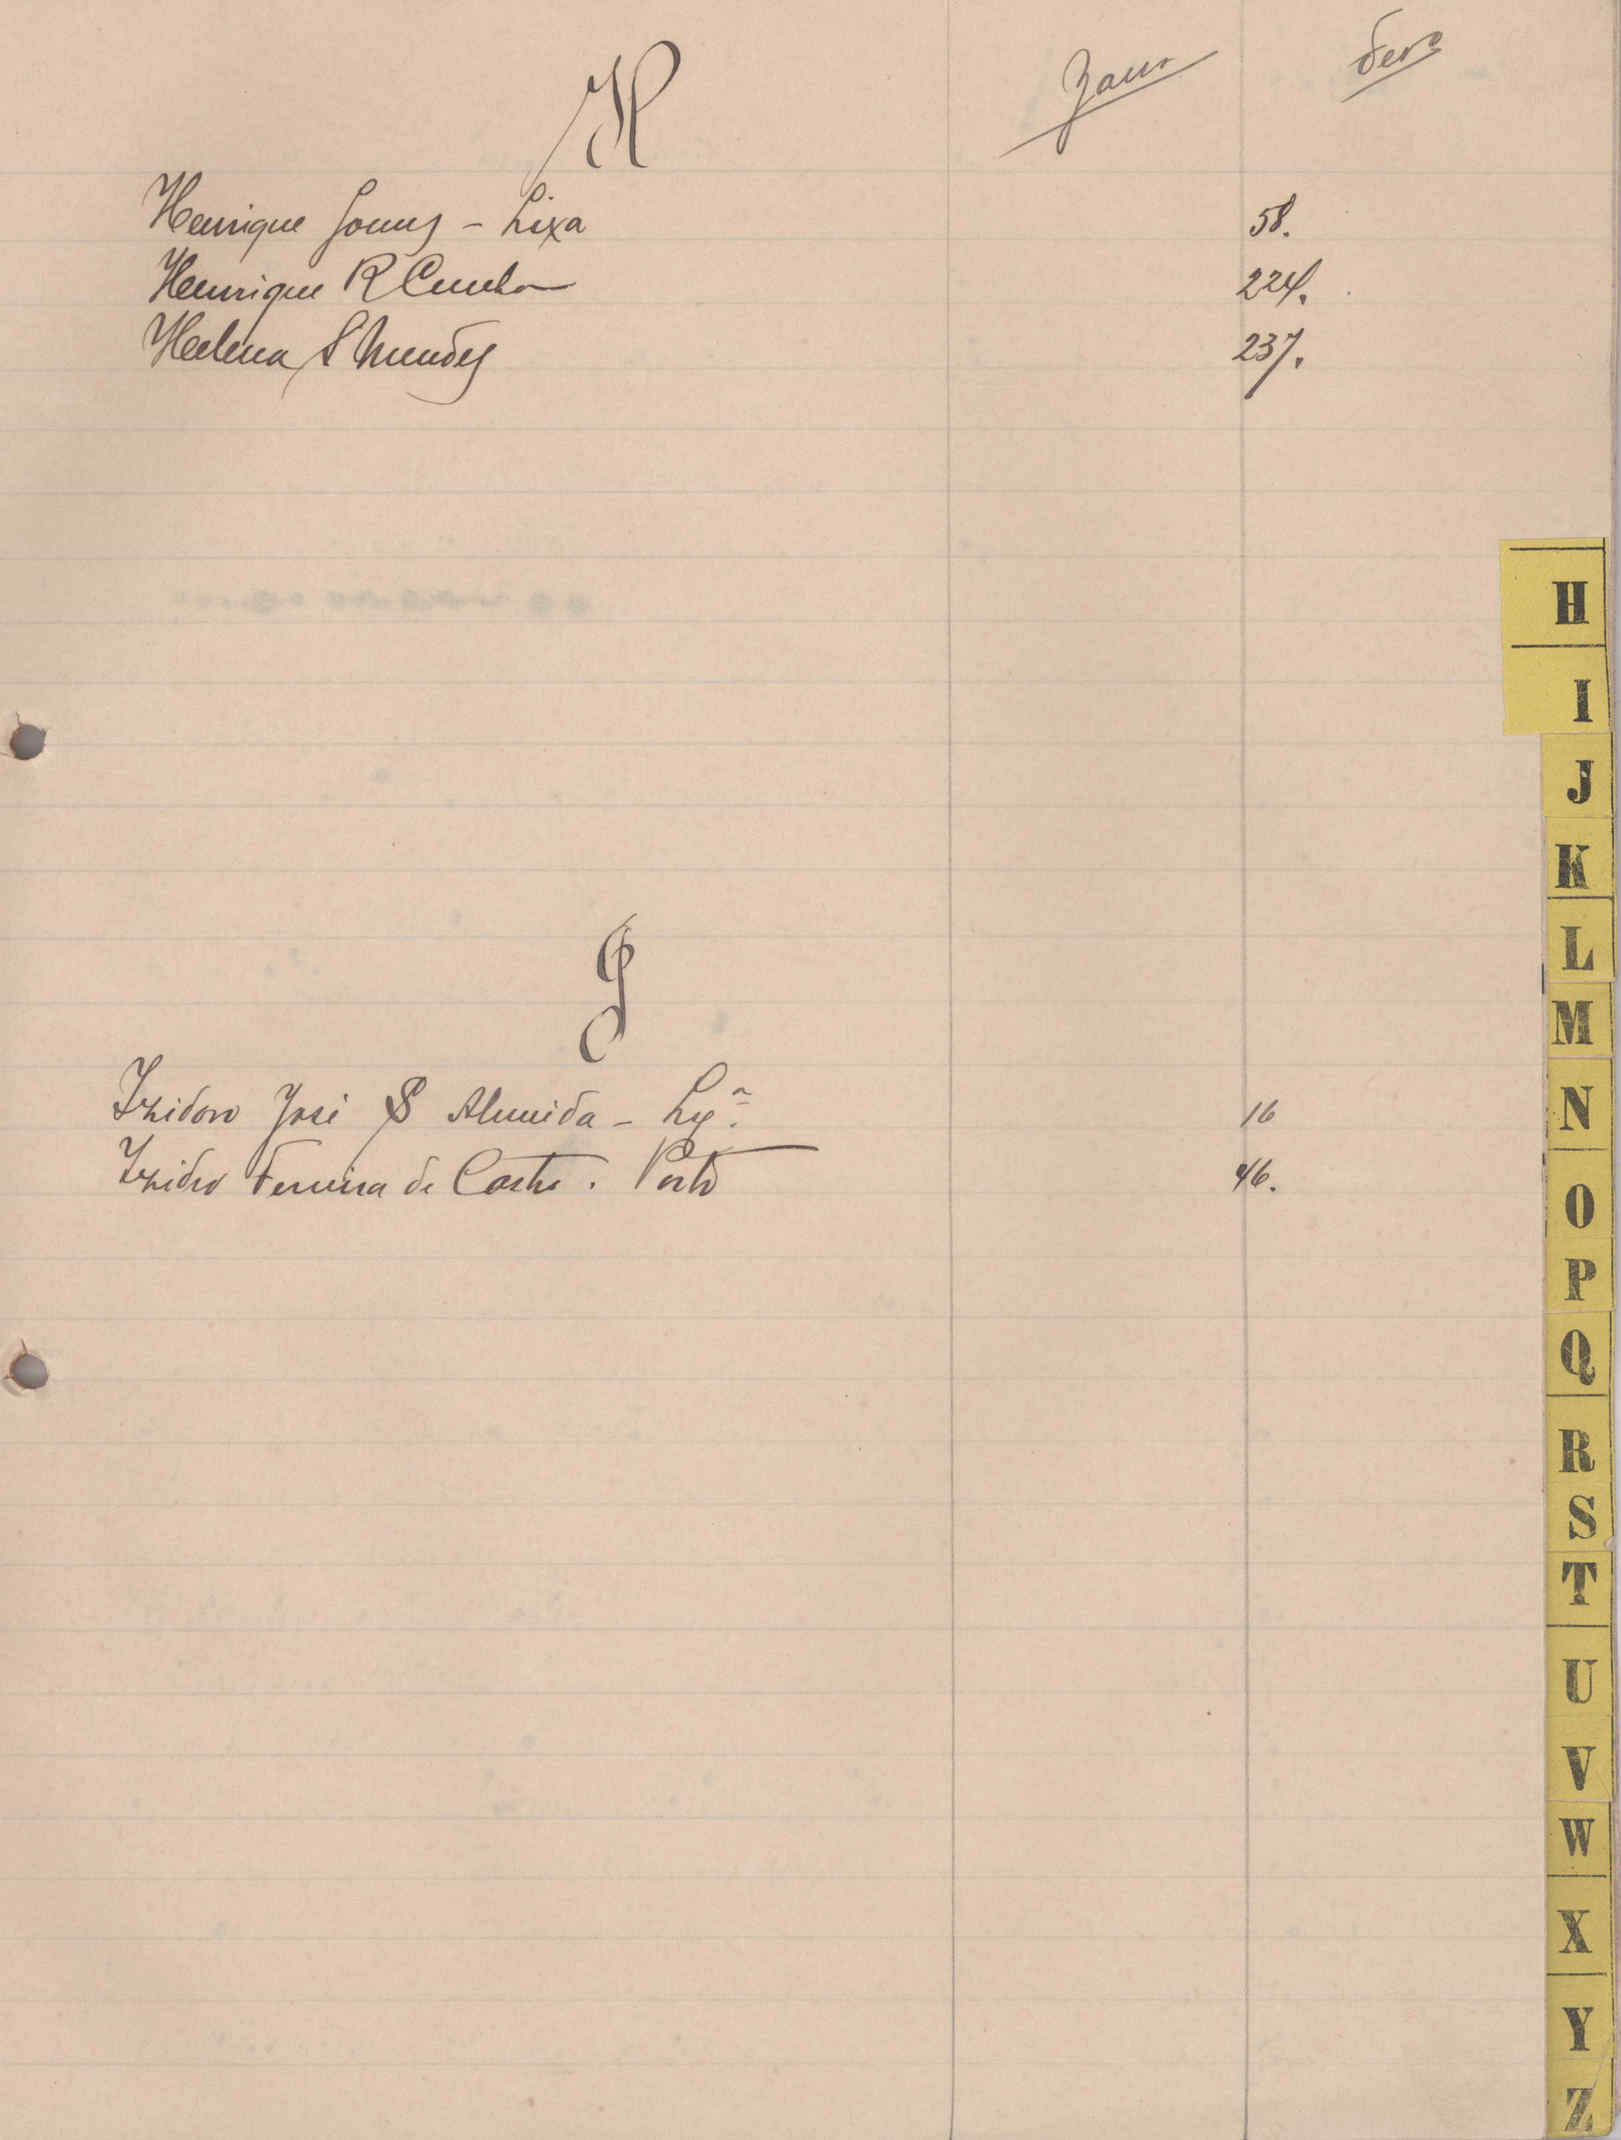 H
Henrique Gomes - Lixa 58.
Henrique R Cunha 224.
Helena S Mendes 237.
H
I
J
K
L
M
N
O
P
Q
R
S
T
U
V
W
X
Y
Z
I
Izidoro José S Almeida - Lxª 16
Izidro Ferreira de Castro. Porto 46.